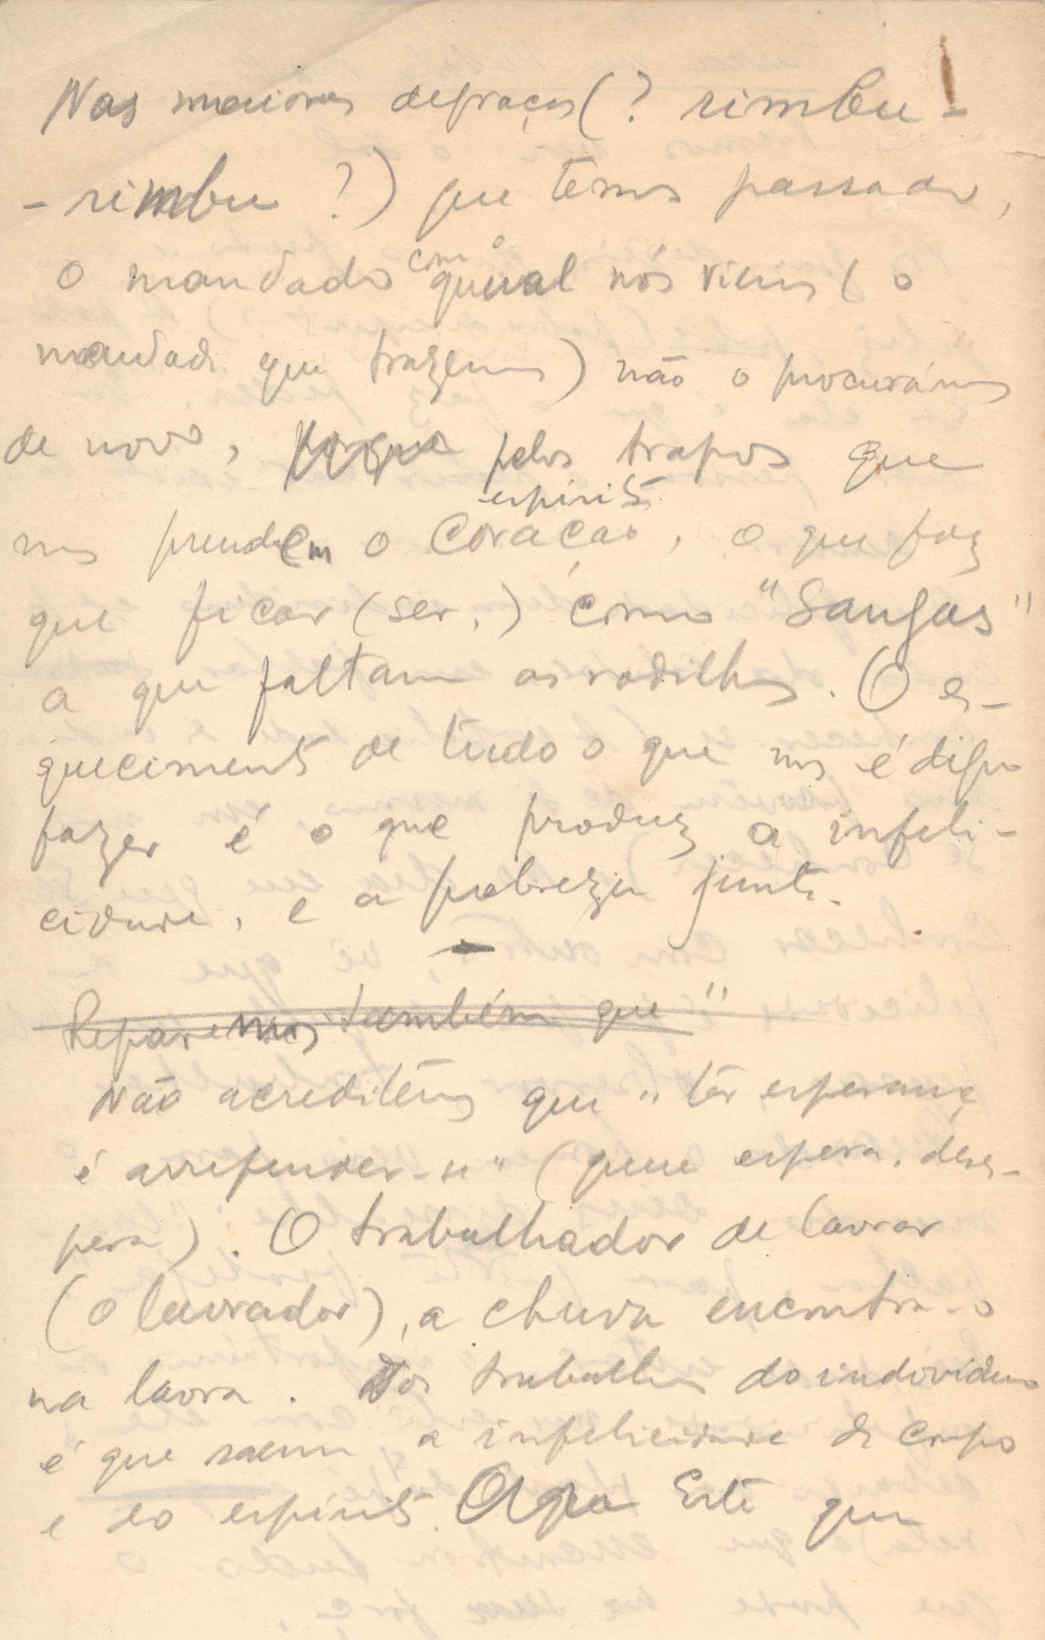 Nas maiores desgraças (? rimbu-
-rimbu ?) que temos passado,
com o
o mandado qual nós viemos (o
mandado que trazemos) não o procurámos
de novo, porque pelos trapos que
espírito
nos prendem o coração, o que faz
que ficar (ser,) como "Sangas"
a que faltam as rodilhas. O es-
quecimento de tudo o que nos é digno
fazer é o que produz a infeli-
cidade, e a pobreza junto.
Reparemos também que "
Não acreditemos que "ter esperança
é arrepender-se" (quem espera, deses-
pera). O trabalhador de lavrar
(o lavrador), a chuva encontra-o
na lavra. Dos trabalhos do indivíduo
é que saem a infelicidade do corpo
e do espírito. Este que